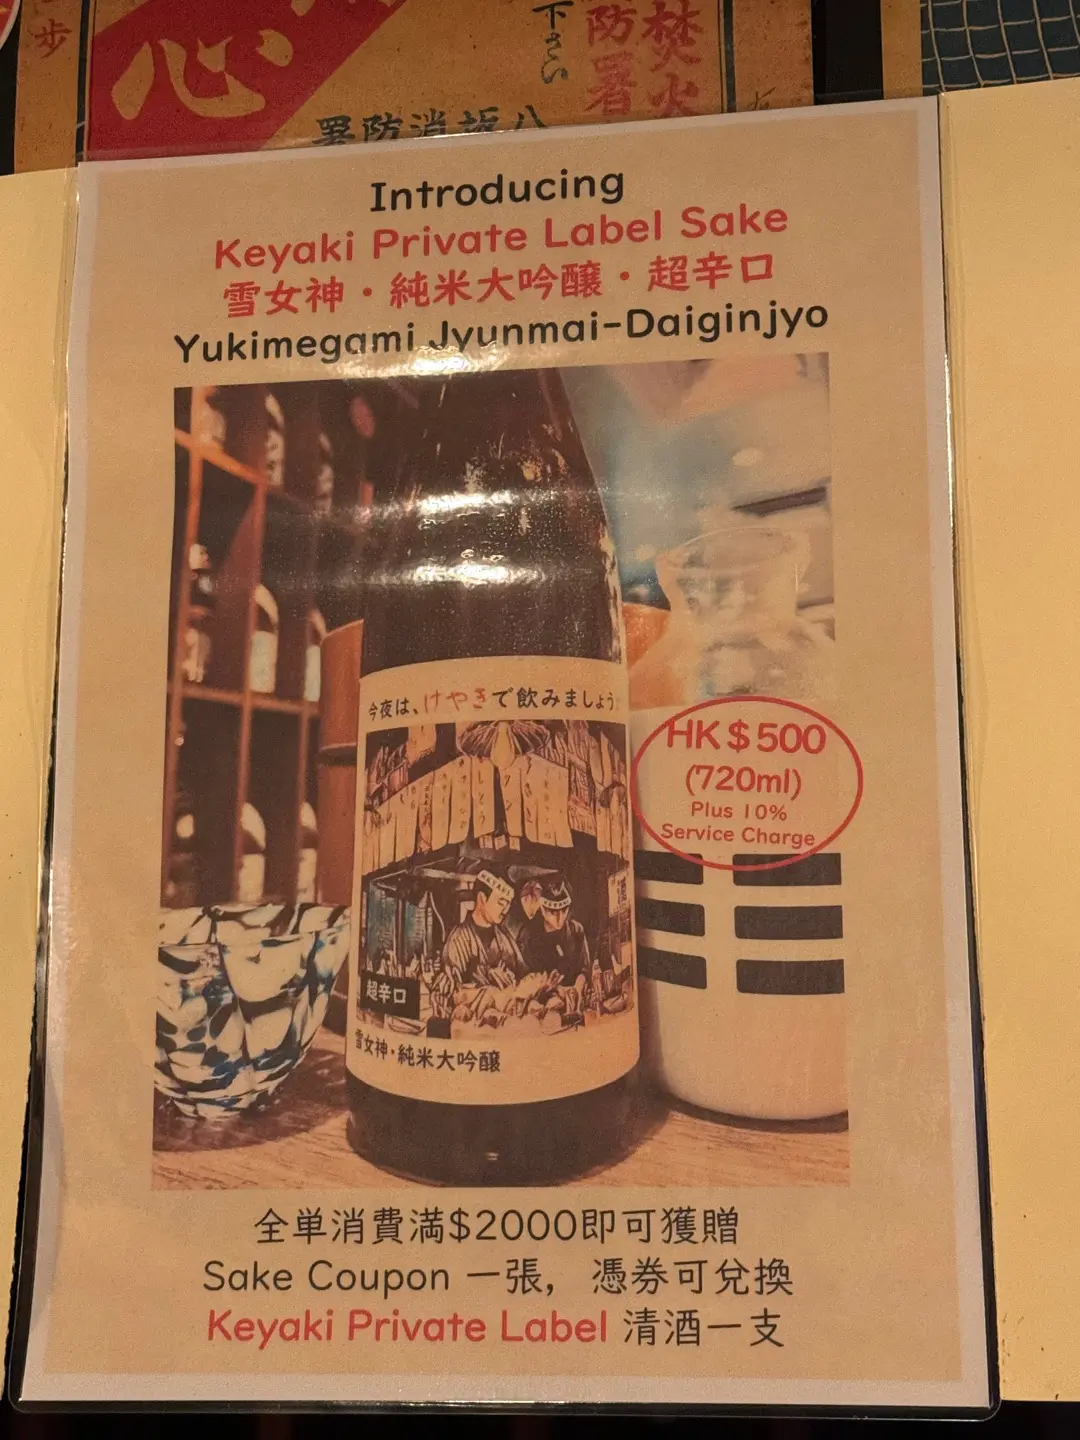 歩
心
下さい
防署
焚火
八坂消防署
Introducing
Keyaki Private Label Sake
雪女神・純米大吟醸・超辛口
Yukimegami Jyunmai-Daiginjyo
今夜は、けやきで飲みましょう
HK$500
(720ml)
Plus 10%
Service Charge
KEYAKI
KEYAKI
超辛口
雪女神・純米大吟醸
全単消費満$2000即可獲贈
Sake Coupon 一張，憑券可兌換
Keyaki Private Label 清酒一支